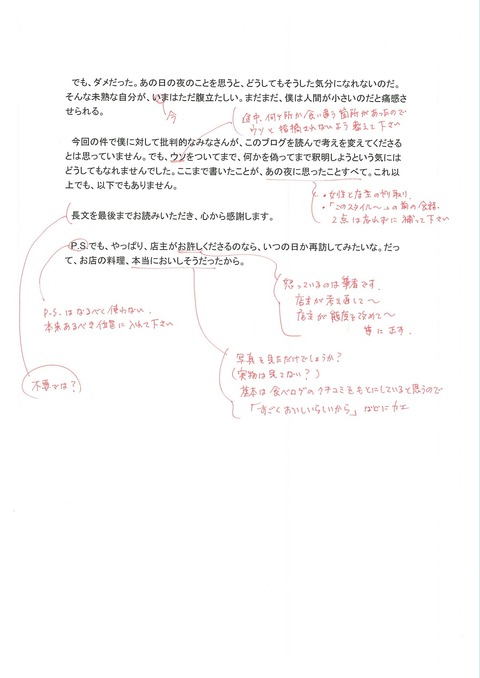 でも、ダメだった。あの日の夜のことを思うと、どうしてもそうした気分になれないのだ。
そんな未熟な自分が、いまはただ腹立たしい。まだまだ、僕は人間が小さいのだと痛感さ
せられる。
今
途中、何ヶ所か食い違う箇所があったので
ウソと指摘されないよう整えて下さい
今回の件で僕に対して批判的なみなさんが、このブログを読んで考えを変えてくださる
とは思っていません。でも、ウソをついてまで、何かを偽ってまで釈明しようという気には
どうしてもなれませんでした。ここまで書いたことが、あの夜に思ったことすべて。これ以
上でも、以下でもありません。
・女性と店主のやり取り
・「このスタイル〜」の前の
2点は忘れずに補って下さい
長文を最後までお読みいただき、心から感謝します。
P.S.でも、やっぱり、店主がお許しくださるのなら、いつの日か再訪してみたいな。だっ
て、お店の料理、本当においしそうだったから。
怒っているのは筆者です。
店主が考え直して〜
店主が態度を改めて〜
等に正す。
P.S.はなるべく使わない。
本来あるべき位置に入れて下さい
写真を見ただけでしょうか?
(実物は見てない?)
基本は食べログのクチコミをもとにしていると思うので
「すごくおいしいらしいから」などにカエ
不要では?